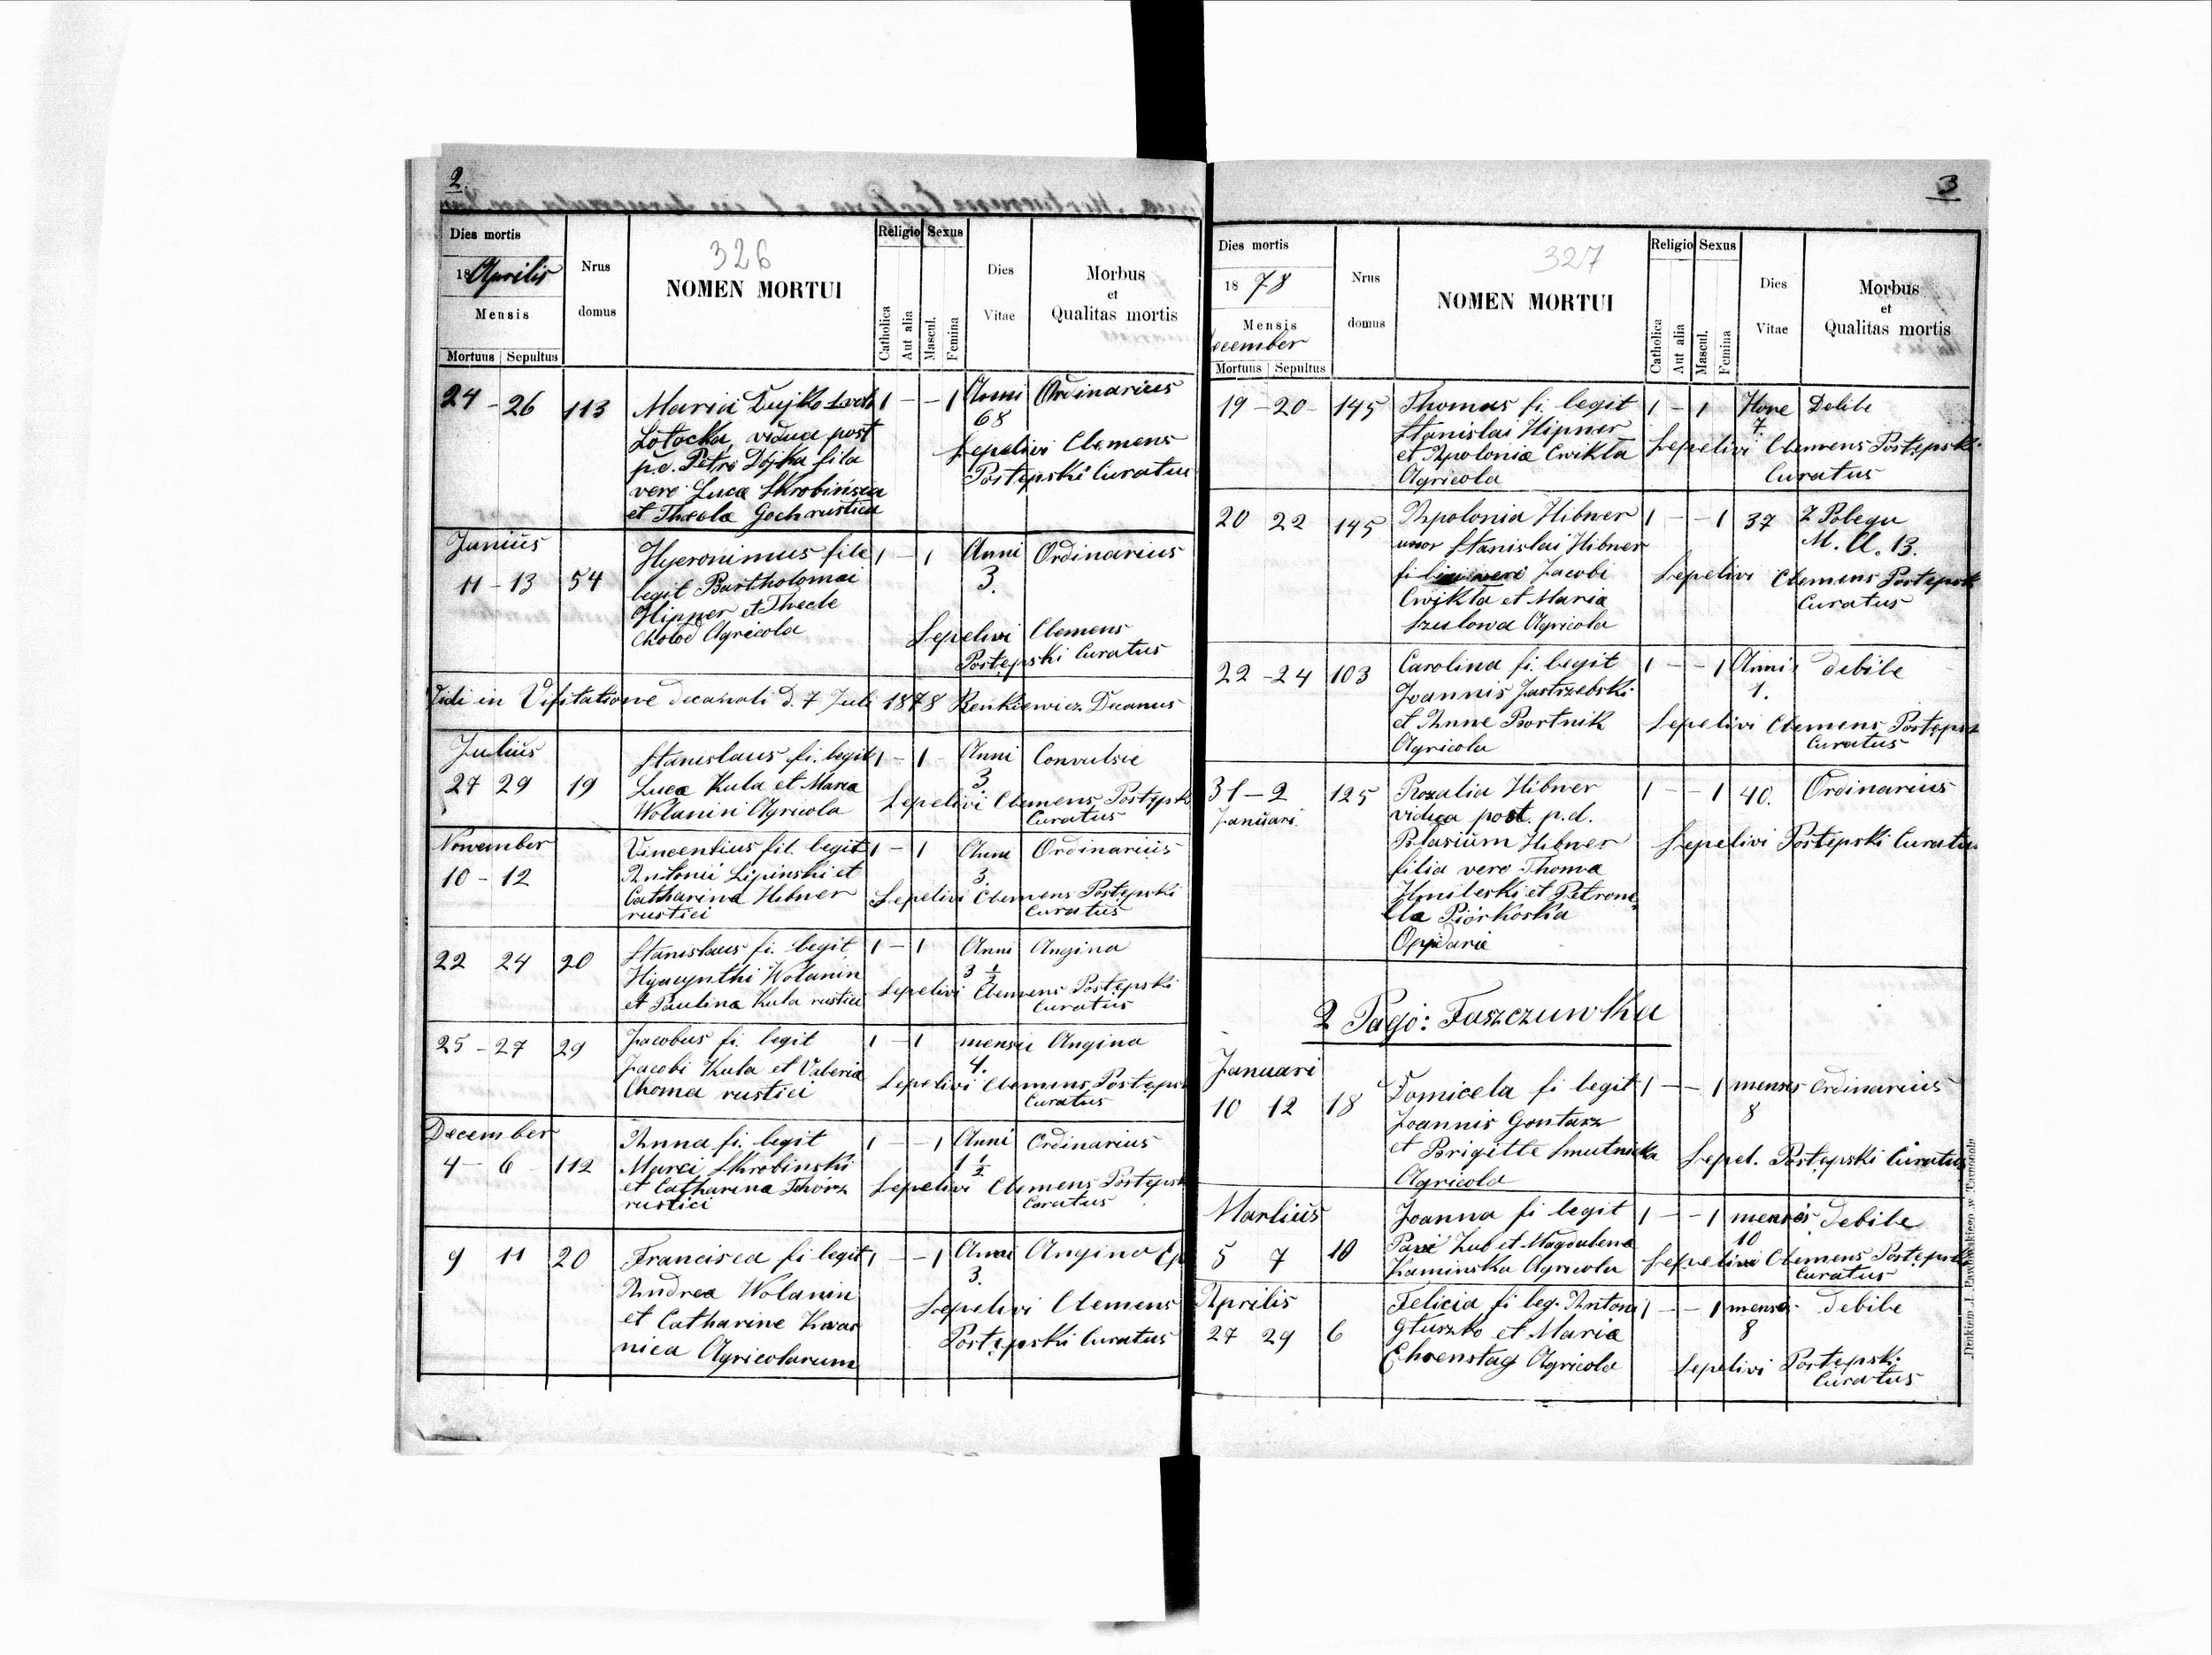 2
Dies mortis
18 Aprilis
Mensis
Mortuus Sepultus
Nrus domus
326
NOMEN MORTUI
Religio Sexus
Catholica Aut alia Mascul. Femina
Dies Vitae
Morbus et Qualitas mortis
24 - 26 113 Maria Dujko 1 - - 1 Anni Ordinarius
Lotocka, vidua post 68
p.d. Petro Dojka filia Sepelivi Clemens
vero Luca Skrobińscia Postępski Curatus
et Thecla Goch rustica
Junius
11 - 13 54 Hyeronimus file 1 - 1 Anni Ordinarius
legit Bartholomai 3.
Hipper et Thecle
Chołod Agricola Sepelivi Clemens
Postępski Curatus
Vidi in Visitatione decanali d. 7 Juli 1878 Renkiewicz Decanus
Julius
27 29 19 Stanislaus fi. legit 1 - 1 Anni Convulsie
Luca Kula et Maria 3
Wolanin Agricola Sepelivi Clemens Postępski
Curatus
November
10 - 12 Vincentius fil. legit 1 - 1 Anni Ordinarius
Antonii Lipinski et 3.
Catharina Hibner Sepelivi Clemens Postępski
rustici Curatus
22 24 20 Stanislaus fi. legit 1 - 1 Anni Angina
Hyacynthi Wolanin 3 1/2
et Paulina Kula rustici Sepelivi Clemens Postępski
Curatus
25 - 27 29 Jacobus fi. legit 1 - 1 mensii Angina
Jacobi Kula et Valeria 4.
Choma rustici Sepelivi Clemens Postępski
Curatus
December
4 - 6 112 Anna fi. legit 1 - - 1 Anni Ordinarius
Marci Skrobinski 1 1/2
et Catharina Tchórz Sepelivi Clemens Postępski
rustici Curatus
9 11 20 Francisca fi legit 1 - - 1 Anni Angina Ep
Andrea Wolanin 3.
et Catharine Kwas Sepelivi Clemens
nica Agricolarum Postępski Curatus
3
Dies mortis
18 78
Mensis
ecember
Mortuus Sepultus
Nrus domus
327
NOMEN MORTUI
Religio Sexus
Catholica Aut alia Mascul. Femina
Dies Vitae
Morbus et Qualitas mortis
19 - 20 - 145 Thomas fi. legit 1 - 1 Hore Debile
Stanislai Hipner 7
et Apolonia Cwikła Sepelivi Clemens Postępski
Agricola Curatus
20 22 145 Apolonia Hibner 1 - - 1 37 Z Połogu
uxor Stanislai Hibner M. U. 13.
filia vero Jacobi Sepelivi Clemens Postępsk
Cwikła et Maria Curatus
Szulowa Agricola
22 - 24 103 Carolina fi. legit 1 - - 1 Anni debile
Joannis Jastrzebski 1.
et Anne Bortnik Sepelivi Clemens Postępsk
Agricola Curatus
31 - 2 125 Rozalia Hibner 1 - - 1 40. Ordinarius
Januari. vidua post. p.d.
Blasium Hibner Sepelivi Postępski Curatus
filia vero Thoma
Hmileski et Petrone
lla Piórkoska
Oppidarii
2 Pago: Faszczuwka
Januari
10 12 18 Domicela fi legit 1 - - 1 menses Ordinarius
Joannis Gontarz 8
et Brigitte Smutnicka Sepel. Postępski Curatus
Agricola
Martius
5 7 10 Joanna fi legit 1 - - 1 mensis debile
Zub et Magdalena 10
Kaminska Agricola Sepelivi Clemens Postępski
Curatus
Aprilis
27 29 6 Felicia fi leg. Antoni 1 - - 1 menses debile
Głuszko et Maria 8
Ehrenstag Agricola Sepelivi Postępski
Curatus
Drukiem J. Pawłowskiego w Tarnopolu